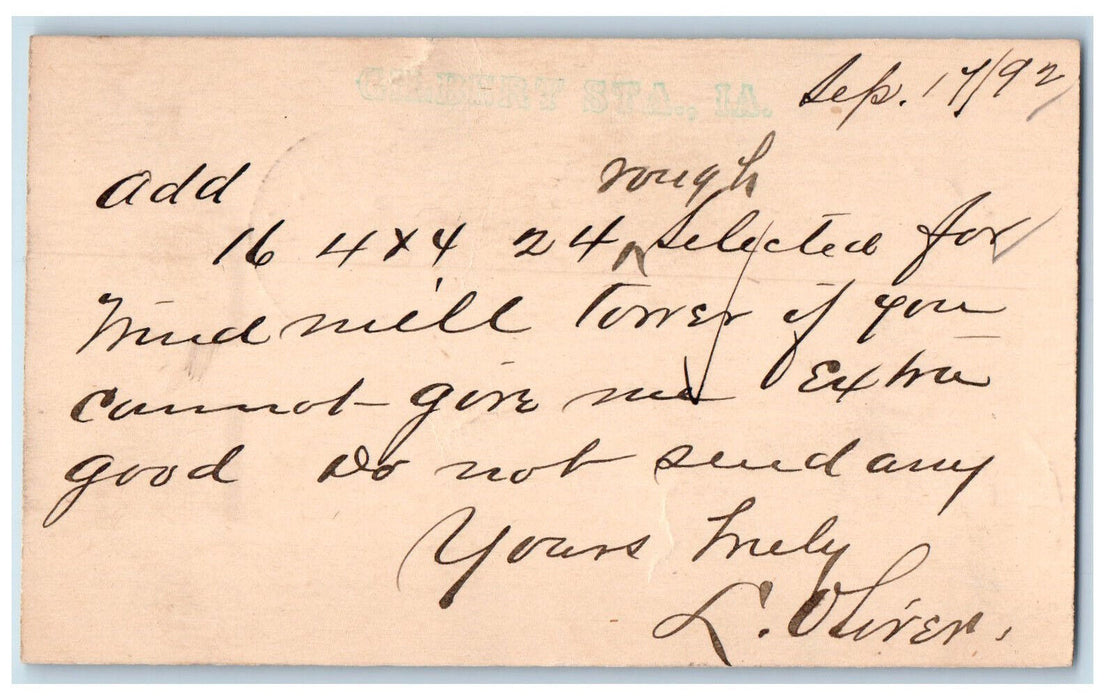 GILBERT STA., IA.
Sep. 17/92
Add
rough
16 4x4 24 ^ Selected for
Wind mill Tower if you
cannot give me Extra
good Do not send any
Yours truly
L. Oliver.